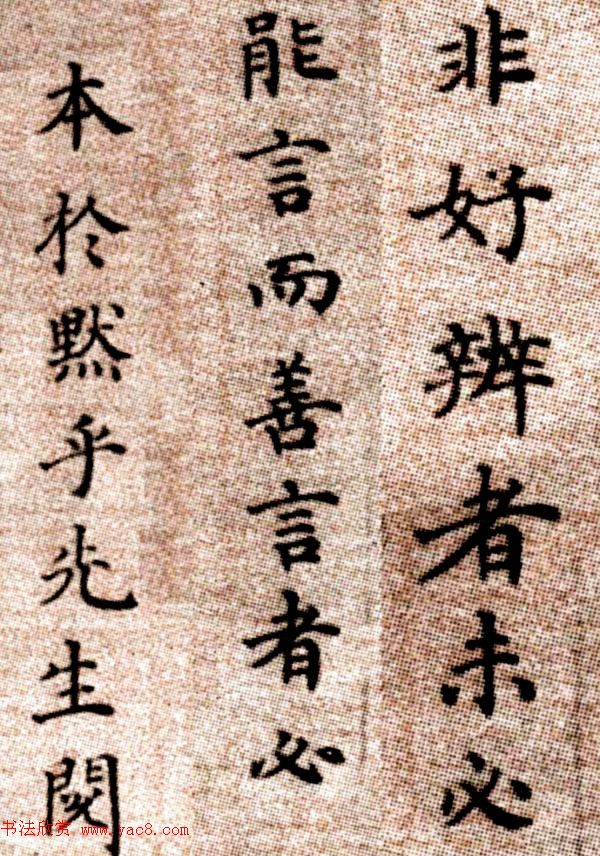 非好辨者未必
能言而善言者必
本於黙乎先生閔
书法欣赏 www.yac8.com